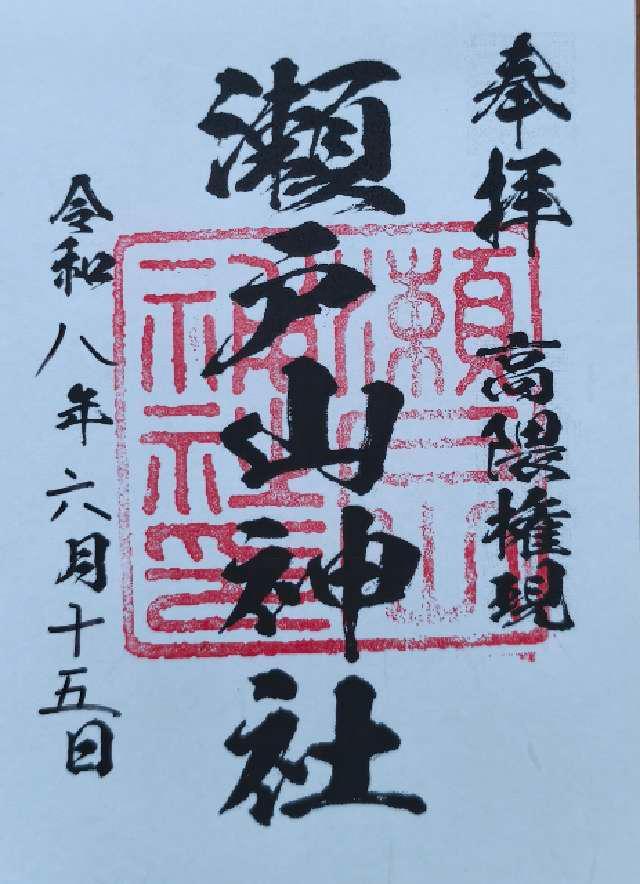 奉拝 高隈権現
瀬戸山神社
令和八年六月十五日
瀬戸山神社印